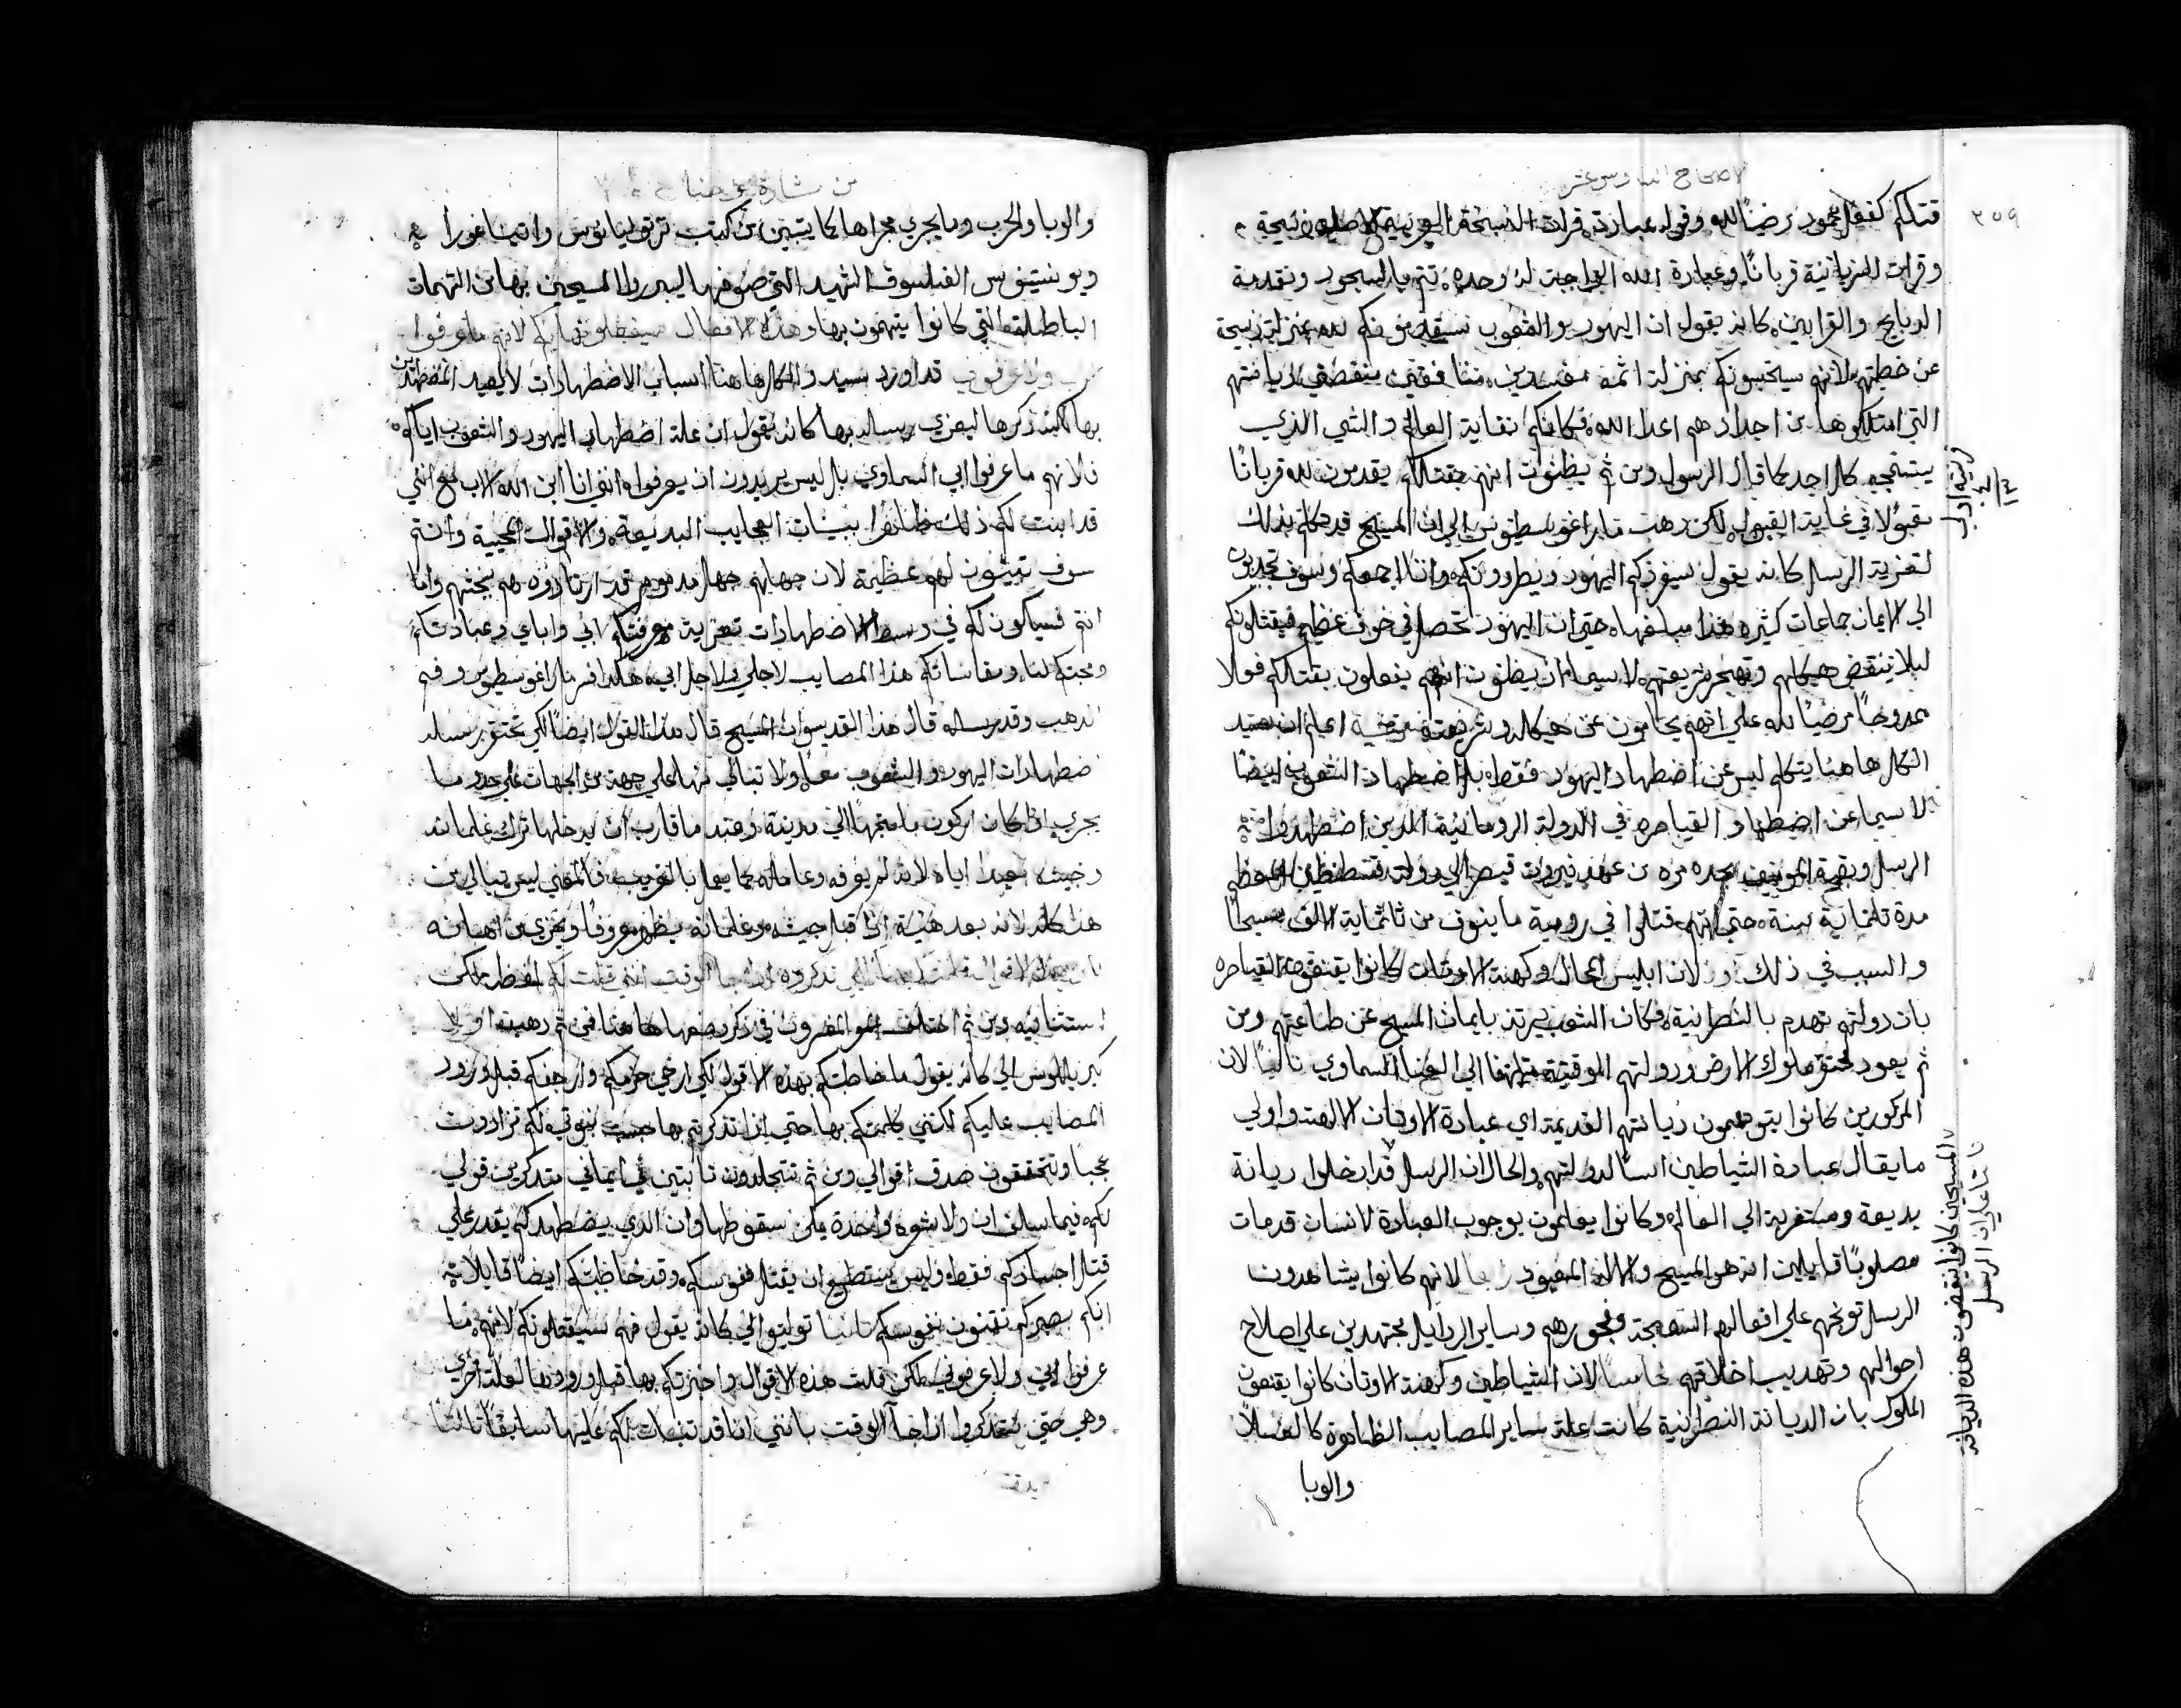 الاصحاح السادس عشر
٢٥٩
قتلكم كفعل محمود مرضيًا لله وقوله عبادة قرات النسخة العربية الاصلية ذبيحة
وقرات السريانية قربانًا وعبادة الله الواجبة له وحده تتم بالسجود وتقدمة
الدبايح والقرابين كانه يقول ان اليهود والشعوب سيقدمونكم لله بمنزلة ذبيحة
عن خطيتهم لانهم سيحسبونكم بمنزلة اثمة مفسدين منافقين ديانتهم
التي امتلكوها من اجدادهم اعدا الله فكانكم نفاية العالم والشي الذي
يستنجيه كل احد كما قال الرسول ومن ثم يظنون انهم بقتلكم يقدمون لله قربانًا
مقبولا في غاية القبول لكن دهب ماراغوسطينوس الي ان المسيح قد تكلم بذلك
لتعزية الرسل كانه يقول سيفرزكم اليهود ويطردونكم وانا اجمعكم وسوف تجدبون
الي الايمان جماعات كثيره هذا مبلغها حتي ان اليهود تحصل في خوف عظيم فيقتلونكم
ليلا ينتقض هيكلهم وتهجر شريعتهم لاسيما ان يظنون انهم يفعلون بقتلكم فعلا
ممدوحًا مرضيًا لله علي انهم يحامون عن هيكله وشريعته اعلم ان سيد
الكل هاهنا يتكلم ليس عن اضطهاد اليهود فقط بل اضطهاد الشعوب ايضًا
لاسيما عن اضطهاد القياصره في الدولة الرومانية الدين اضطهدوا
الرسل وبقية المومنين بعده من عهد نيرون قيصر الي دولة قسطنطين المعظم
مدة تلتماية سنة حتي انهم قتلوا في رومية ما ينوف من تلتماية الف مسيحيًا
والسبب في ذلك لان ابليس المحال وكهنة الاوتان كانوا يقنعون القياصره
بان دولتهم تهدم بالنصرانية فكان الشعب يرتد بايمان المسيح عن طاعتهم ومن
ثم يعود يحتقر ملوك الارض ودولتهم الوقتية الي الغنا السماوي تالتًا لان
المدكورين كانوا يتوهمون ديانتهم القديمة اي عبادة الاوتان الالهة واولي
ما يقال عبادة الشياطين اساسًا لدولتهم والحال ان الرسل قد ادخلوا ديانة
بديعة ومستغربة الي العالم وكانوا يعلمون بوجوب العبادة لانسان قد مات
مصلوبًا قايلين انه هو المسيح والاله المعبود رابعا لانهم كانوا يشاهدون
الرسل توبخهم علي افعالهم السمجة وفجورهم وساير الردايل مجتهدين علي اصلاح
احوالهم وتهديب اخلاقهم خامسًا لان الشياطين وكهنة الاوتان كانوا يقنعون
الملوك بان الديانة النصرانية كانت علة ساير المصايب الظاهرة كالغلا
والوبا
المسيحين كانوا ينقضون هذه الديانة
من بشارة يوحنا
والوبا والحرب وما يجري مجراها كما يتبين من كتب ترتوليانوس واتيناغورا
ويوستينوس الفيلسوف الشهيد التي صنفوها ليبرروا المسيحين بها من التهمات
الباطلة التي كانوا يتهمون بها وهذه الافعال سيفعلونها بكم لانهم ما عرفوا
ولا عرفوني قد اورد سيد الكل هاهنا اسباب الاضطهادات لا ليفيد المضطهدين
بها لكنه ذكرها ليعزي رسله بها كانه يقول ان علة اضطهاد اليهود والشعوب اياكم
فلانهم ما عرفوا ابي السماوي بل ليس يريدون ان يعرفوا انني انا ابن الله الاب مع انني
قد ابنت لكم ذلك ببينات العجايب البديعة والاقوال العجيبة وانتم
سوف تبينون لهم عظيمة لان جهلهم جهل مدموم قد ارتادوه هم بخبثهم واما
انتم فسيكون لكم في وسط الاضطهادات تعزية معرفتكم لابي واياي وعبادتكم
ومحبتكم لنا ومقاساتكم هذا المصايب لاجلي ولاجل ابي هكذا فسر ماراغوسطينوس وفم
الدهب وقد قال هذا القديس ان المسيح قال هذا القول ايضًا لكي تحتقر رسله
اضطهادات اليهود والشعوب معا ولا تبالي منها علي جهة من الجهات علي حدو ما
يجري اذا كان اركون ما متجهًا الي مدينة وعند ما قارب ان يدخلها ترك غلمانه
وجيشه اياه لانه لم يعرفه وعامله بما يعامل الغريب فالمعني ليس يبالي من
هذا كله لانه بعد هنيهة اذا قبل جيشه مع غلمانه يظهر معروفًا ويخزي من اهانه
لكي تدكروه اذا جا الوقت انني قلت لكم لفظه لكن
استثنائيه ومن ثم اختلف المفسرون في ذكر وضعها هاهنا فمن ثم دهب اولا
كيرللوس الي كانه يقول ما خاطبتكم بهذه الاقوال لكي ارخي حزمكم وازعجكم قبل ورود
المصايب عليكم لكنني كلمتكم بها حتي اذا تدكرتم بها حسب نبوتي لكم تزدادون
عجبًا وتتحققون صدق اقوالي ومن ثم تتجلدون تابتين في ايماني متدكرين قولي
لكم فيما سلف ان ولا شعره واحدة يمكن سقوطها وان الدي يضطهدكم يقدر علي
قتل اجسادكم فقط وليس يستطيع ان يقتل نفوسكم وقد خاطبتكم ايضًا قايلا
انكم بصبركم تقتنون نفوسكم تانيًا توليتو الي كانه يقول فهم سيقتلونكم لانهم ما
عرفوا ابي ولا عرفوني لكن قلت هذه الاقوال واخبرتكم بها قبل ورودها لعلة اخري
وهي حتي تتدكروا اذا جا الوقت بانني انا قد تنبات لكم عليها سابقًا تالتًا